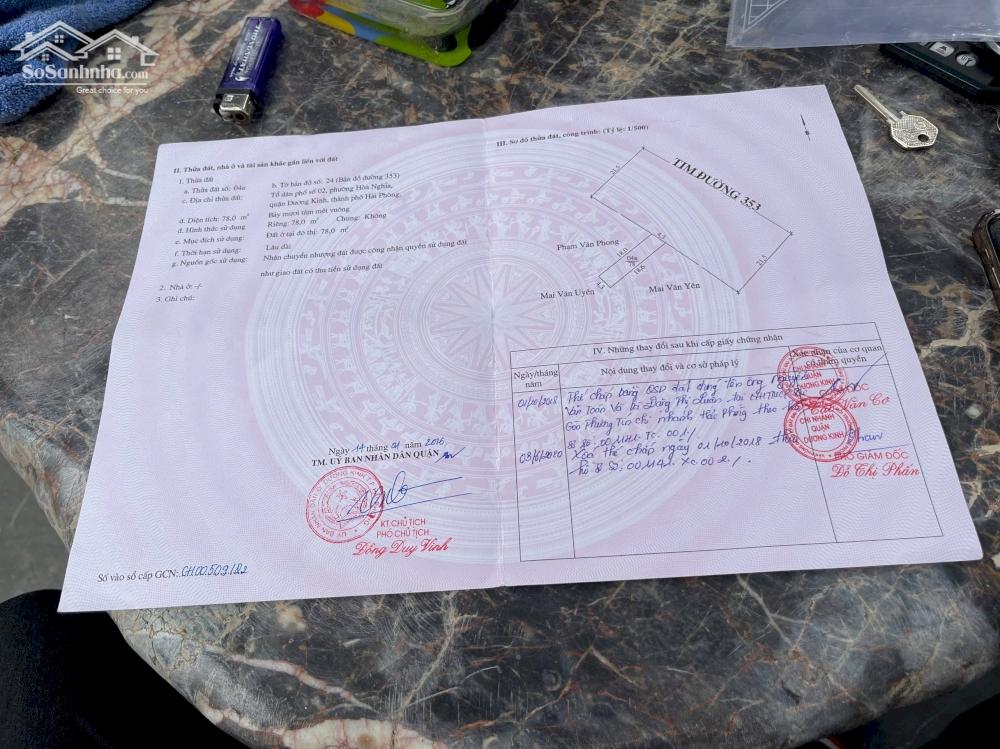 SoSanhnha.com
Great choice for you
II. Thửa đất, nhà ở và tài sản khác gắn liền với đất
1. Thửa đất
a. Thửa đất số: 04a
b. Tờ bản đồ số: 24 (Bản đồ đường 353)
c. Địa chỉ thửa đất:
Tổ dân phố số 02, phường Hòa Nghĩa,
quận Dương Kinh, thành phố Hải Phòng.
d. Diện tích: 78,0 m²
Bảy mươi tám mét vuông
đ. Hình thức sử dụng
Riêng: 78,0 m² Chung: Không
e. Mục đích sử dụng:
Đất ở tại đô thị: 78,0 m²
f. Thời hạn sử dụng:
Lâu dài
g. Nguồn gốc sử dụng:
Nhận chuyển nhượng đất được công nhận quyền sử dụng đất
như giao đất có thu tiền sử dụng đất
2. Nhà ở: -/-
3. Ghi chú:
Ngày 14 tháng 01 năm 2016
TM. UỶ BAN NHÂN DÂN QUẬN
KT. CHỦ TỊCH
PHÓ CHỦ TỊCH
Đồng Duy Vinh
Số vào sổ cấp GCN: CH00.509/22
III. Sơ đồ thửa đất, công trình: (Tỷ lệ: 1/500)
21,5
TIM ĐƯỜNG 353
21,5
Phạm Văn Phong
4,3
18,0
04a
78
18,6
4,3
Mai Văn Uyên
Mai Văn Yên
IV. Những thay đổi sau khi cấp giấy chứng nhận
Ngày/tháng
năm
Nội dung thay đổi và cơ sở pháp lý
Xác nhận của cơ quan
có thẩm quyền
01/10/2018
Thế chấp bằng QSD đất đứng tên ông Nguyễn
Văn Toàn và bà Đặng Thị
chi nhánh Hải Phòng theo hồ
sơ số: 00
03/6/2020
Xóa thế chấp ngày 01/10/2018 theo
hồ sơ số: 00
CHI NHÁNH
QUẬN
DƯƠNG KINH
Văn Cơ
CHI NHÁNH
QUẬN
DƯƠNG KINH
PHÓ GIÁM ĐỐC
Đỗ Thị Phấn